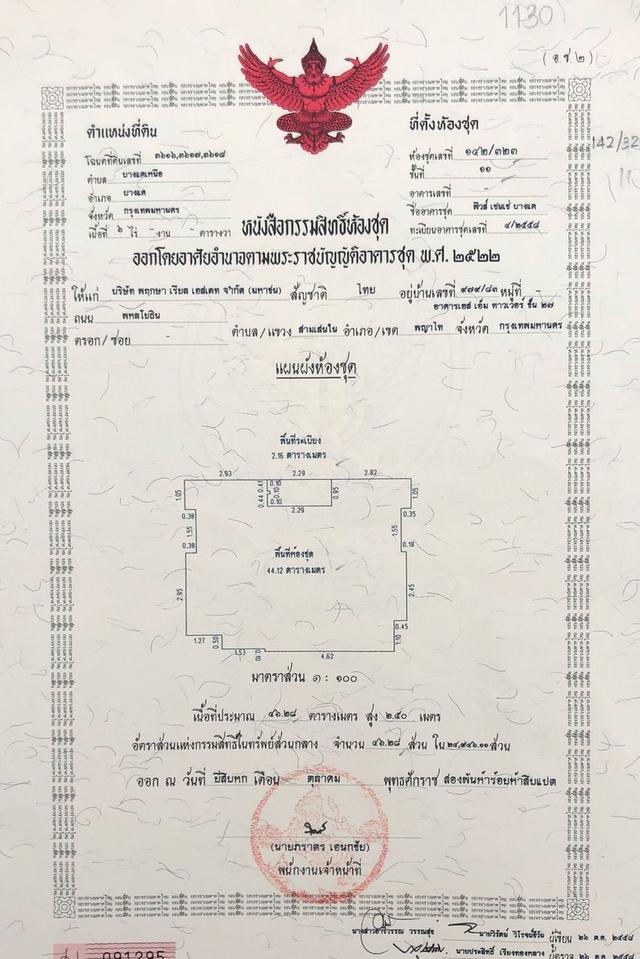 1130
(อ.ช.๒)
ตำแหน่งที่ดิน
โฉนดที่ดินเลขที่ ๓๖๑๖,๓๖๑๗,๓๖๑๘
ตำบล บางแคเหนือ
อำเภอ บางแค
จังหวัด กรุงเทพมหานคร
เนื้อที่ ๖ ไร่ - งาน - ตารางวา
ที่ตั้งห้องชุด
ห้องชุดเลขที่ ๑๔๒/๓๒๓
ชั้นที่ ๑๑
อาคารเลขที่ -
ชื่ออาคารชุด ฟิวส์ เซนเซ่ บางแค
ทะเบียนอาคารชุดเลขที่ ๔/๒๕๕๘
142/32
หนังสือกรรมสิทธิ์ห้องชุด
ออกโดยอาศัยอำนาจตามพระราชบัญญัติอาคารชุด พ.ศ. ๒๕๒๒
ให้แก่ บริษัท พฤกษา เรียล เอสเตท จำกัด (มหาชน) สัญชาติ ไทย อยู่บ้านเลขที่ ๙๗๙/๘๓ หมู่ที่ -
อาคารเอส เอ็ม ทาวเวอร์ ชั้น ๒๗
ถนน พหลโยธิน
ตรอก/ซอย - ตำบล/แขวง สามเสนใน อำเภอ/เขต พญาไท จังหวัด กรุงเทพมหานคร
แผนผังห้องชุด
พื้นที่ระเบียง
2.16 ตารางเมตร
2.93 2.29 2.82
1.05 0.44 0.10 0.95 1.05
0.38 2.29 0.35
1.55 1.55
0.38 0.18
พื้นที่ห้องชุด
44.12 ตารางเมตร
2.95 2.45
0.45
1.27 0.50 1.10
1.53 0.10 4.62
มาตราส่วน ๑ : ๑๐๐
เนื้อที่ประมาณ ๔๖.๒๘ ตารางเมตร สูง ๒.๕๐ เมตร
อัตราส่วนแห่งกรรมสิทธิ์ในทรัพย์ส่วนกลาง จำนวน ๔๖.๒๘ ส่วน ใน ๒๔,๙๔๖.๑๑ ส่วน
ออก ณ วันที่ ยี่สิบหก เดือน ตุลาคม พุทธศักราช สองพันห้าร้อยห้าสิบแปด
(นายภราดร เอนกชัย)
พนักงานเจ้าหน้าที่
วรรณสุข นายวิรัตน์ วิโรจน์ชีวัน ผู้เขียน ๒๖ ต.ค. ๒๕๕๘
นายประสิทธิ์ เรียงทองหลาง ผู้ตรวจ ๒๖ ต.ค. ๒๕๕๘